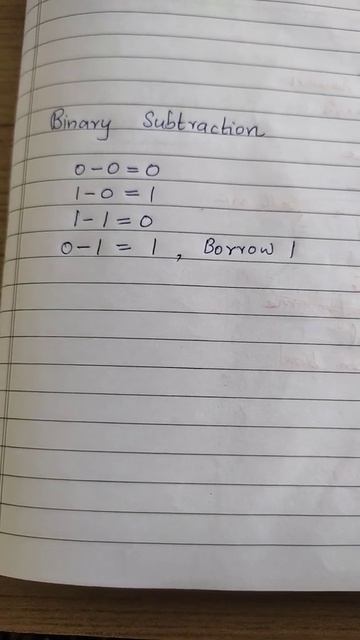 Binary Subtraction
0-0=0
1-0=1
1-1=0
0-1=1, Borrow 1